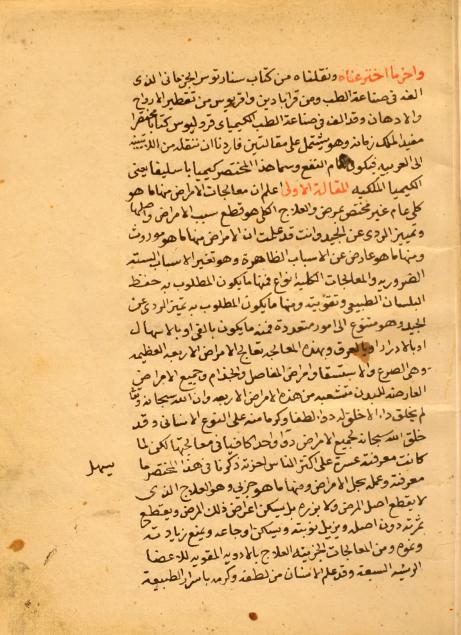 واخرما اخترعناه ونقلناه من كتاب سنارتوس الجرماني الذي
الفه في صناعة الطب ومن قرابادين واقريوس من تقطير الارواح
والادهان وقد الف في صناعة الطب الكيمياي قروليوس كتابا مختصرا
مفيدا لملك زمانه وهو يشتمل على مقالتين فاردنا ان ننقله من اللاتينية
الى العربيه فيكون عام النفع وسما هذا المختصر كيميا باسليقا يعني
الكيميا الملكيه المقالة الاولى اعلم ان معالجات الامراض منها ما هو
كلي عام غير مختص بمرض والعلاج الكلي هو قطع سبب الامراض واصلها
وتمييز الردى عن الجيد وانت قد علمت ان الامراض منها ما هو موروث
ومنها ما هو عارض عن الاسباب الظاهرة وهو تغير الاسباب الستة
الضروريه والمعالجات الكلية انواع فمنها ما يكون المطلوب به حفظ
البلسان الطبيعي وتقويته ومنها ما يكون المطلوب به تميز الردى عن
الجيد وهو متنوع الى امور متعددة فمنه ما يكون بالقي او بالاسهال
او بالادرار او بالعرق وبهذه المعالجه تعالج الامراض الاربعه العظيمه
وهي الصرع والاستسقا وامراض المفاصل والجذام وجميع الامراض
العارضة للبدن متشعبه من هذه الامراض الاربعه وان الله سبحانه وتعا
لم يخلق داء الا خلق له دوا لطفا وكرما منه على النوع الانساني وقد
خلق الله سبحانه لجميع الامراض دوا واحدا كافيا في معالجتها لكن لما
كانت معرفته عسرة على اكثر الناس احزته ذكرنا في هذا المختصر ما
يسهل
معرفته وعمله بجل الامراض ومنها ما هو جزيي وهو العلاج الذي
لا يقطع اصل المرض ولا بزره بل يسكن اعراض ذلك المرض ويقطع
ثمرته دون اصله ويزيل نوبته ويسكن اوجاعه ويمنع زيادته
ونموه ومن المعالجات الجزييه العلاج بالادويه المقويه للاعضا
الرئيسه السبعة وقد علم الانسان من لطفه وكرمه باسرار الطبيعة